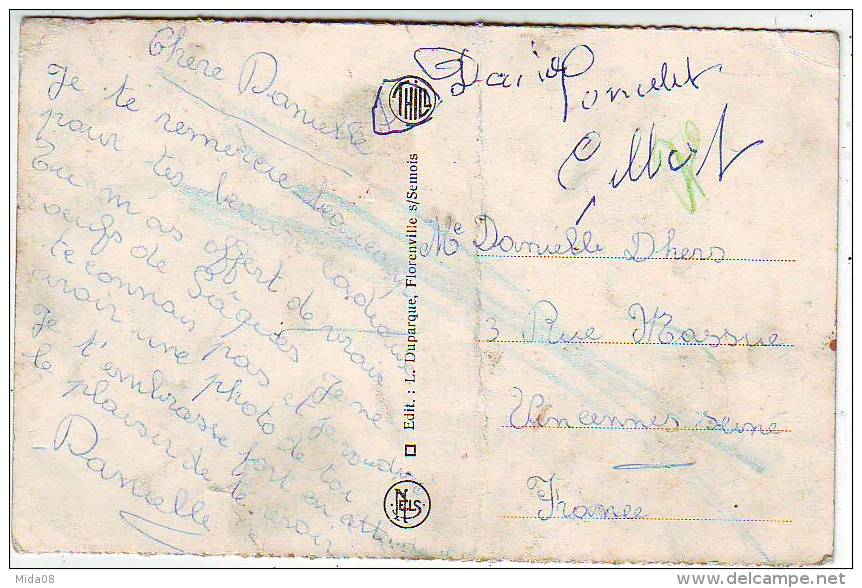 Chère Danielle
Je te remercie beaucoup
pour tes beaux cadeaux
Tu m'as offert de vrais
oeufs de Pâques Je ne
te connais pas et je voudrais
avoir une photo de toi
Je t'embrasse fort en attendant
le plaisir de te voir
Danielle
THILL
Edit. : L. Duparque, Florenville s/Semois
NELS
Poncelet
Gilbert
Me Danielle Dhers
3 Rue Massue
Vincennes Seine
France
Mida08
delcampe.net